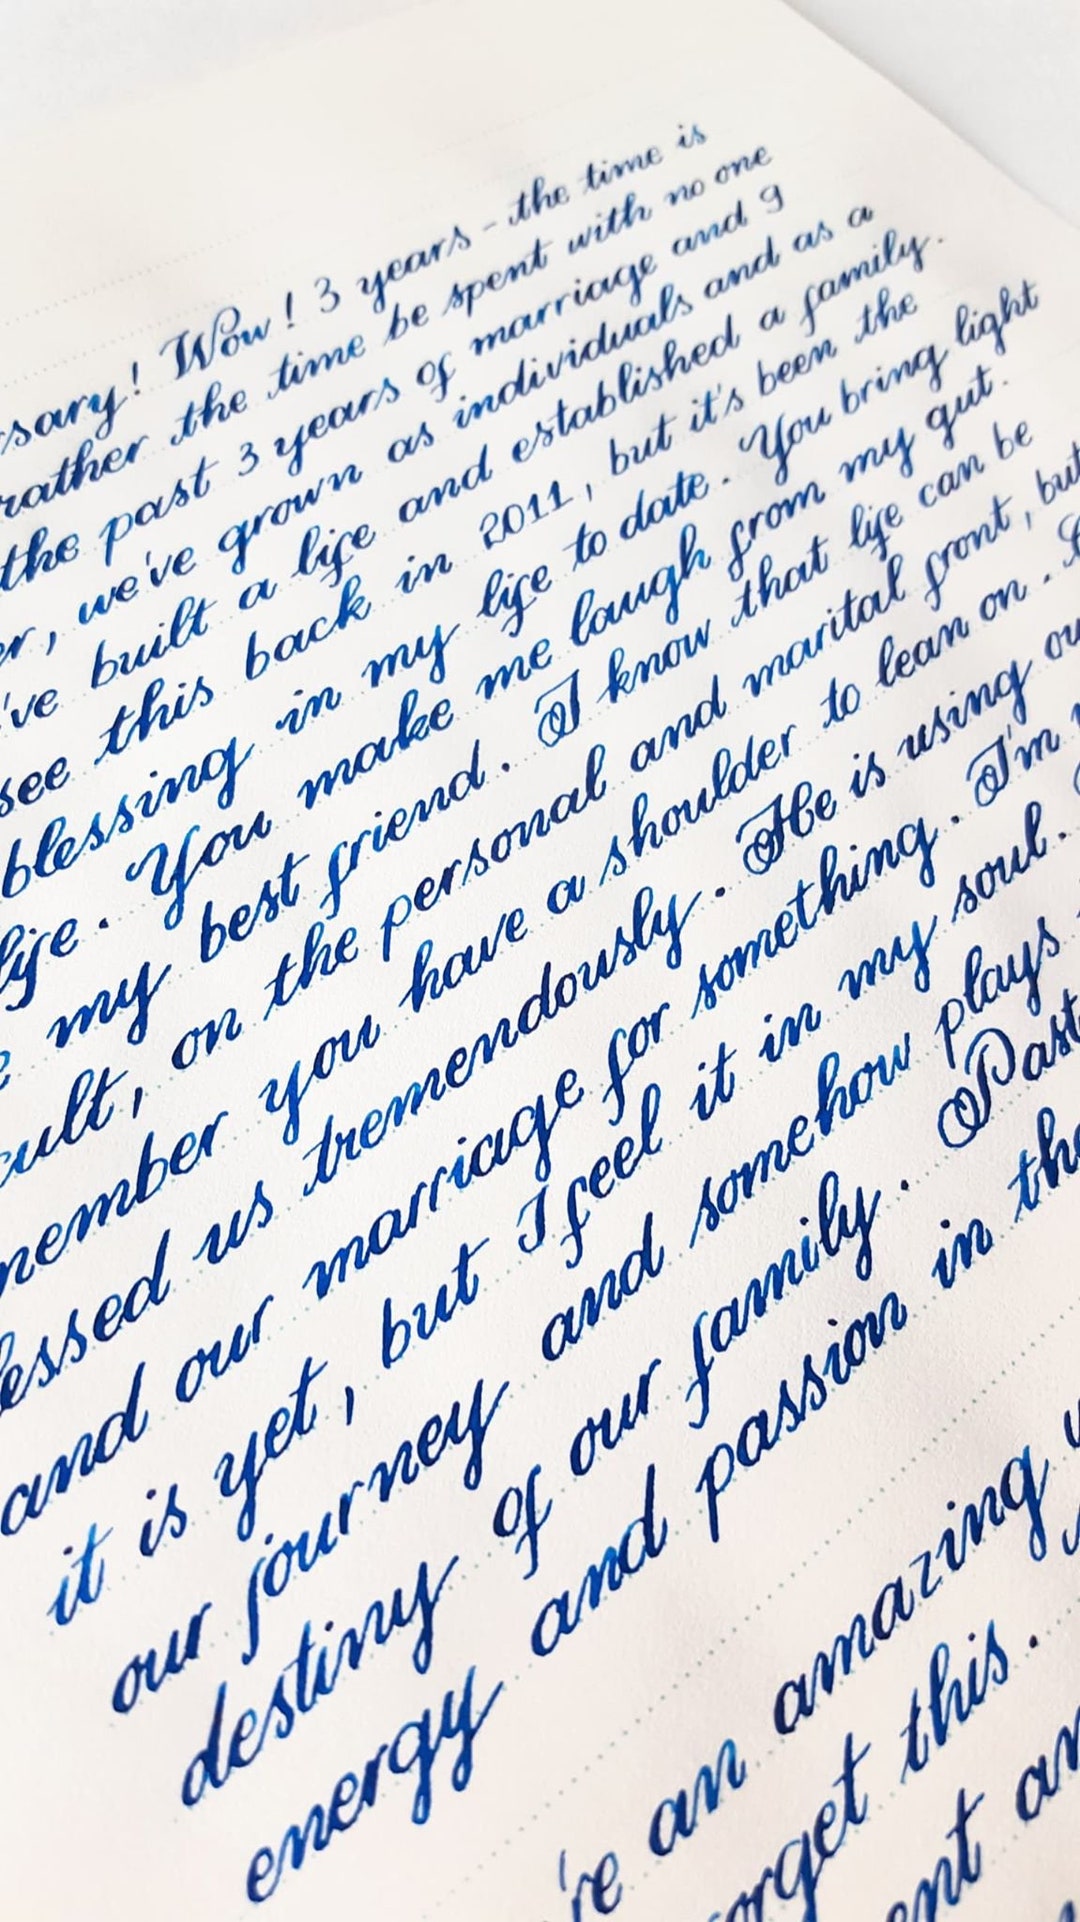 ! Wow! 3 years - the time is
rather the time be spent with no one
the past 3 years of marriage and 9
we've grown as individuals and as a
've built a life and established a family.
see this back in 2011, but it's been the
blessing in my life to date. You bring light
life. You make me laugh from my gut.
my best friend. I know that life can be
on the personal and marital front, but
you have a shoulder to lean on.
us tremendously. He is using
and our marriage for something. I'm
it is yet, but I feel it in my soul.
our journey and somehow plays
destiny of our family.
energy and passion in
're an amazing
this.